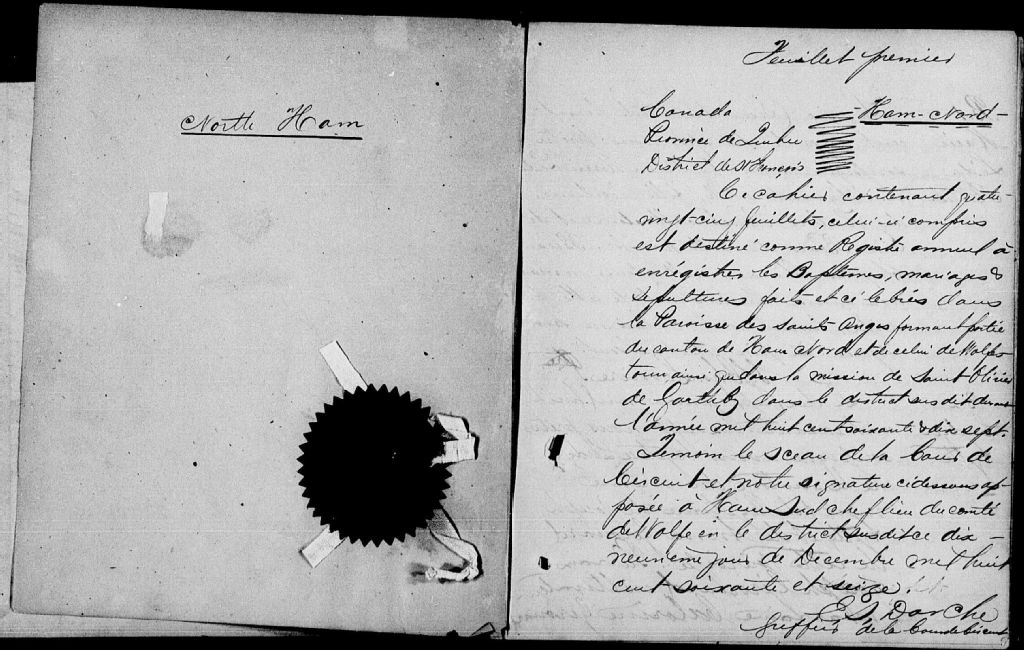 North Ham
Feuillet premier
Canada
Province de Quebec
District de St François
Ham-Nord
Ce cahier contenant quatre-
vingt-cinq feuillets, celui-ci compris
est destiné comme Registre annuel à
enrégistrer les Baptêmes, mariages &
sepultures faits et célebrés dans
la Paroisse des saints Anges formant partie
du canton de Ham Nord et de celui de Wolfes
town ainsi que dans la mission de Saint Olivier
de Garthby dans le district susdit durant
l'année mil huit cent soixante & dix sept.
Temoin le sceau de la Cour de
Circuit et notre signature ci dessous ap-
posée à Ham Sud chef lieu du comté
de Wolfe en le district susdit ce dix-
neuvième jour de Decembre mil huit
cent soixante et seize.
Darche
Greffier de la Cour de Circuit